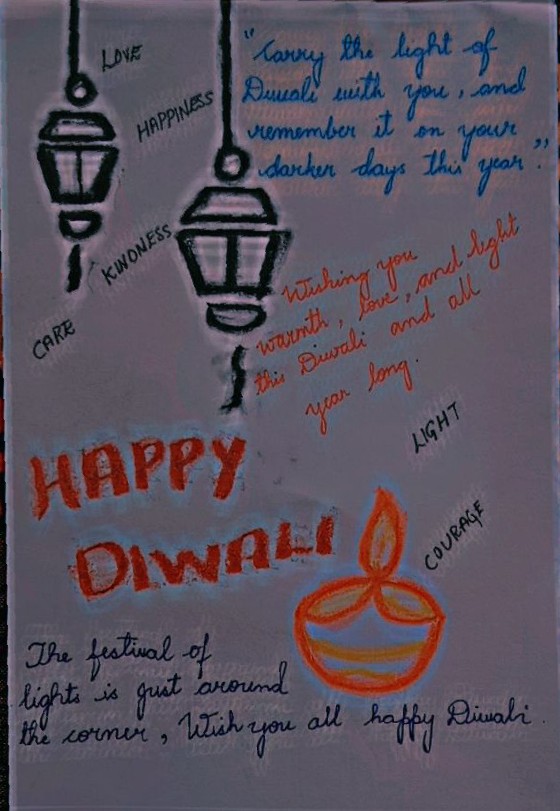 LOVE
HAPPINESS
KINDNESS
CARE
"Carry the light of
Diwali with you, and
remember it on your
darker days this year".
Wishing you
warmth, love, and light
this Diwali and all
year long.
LIGHT
COURAGE
HAPPY
DIWALI
The festival of
lights is just around
the corner, Wish you all happy Diwali.